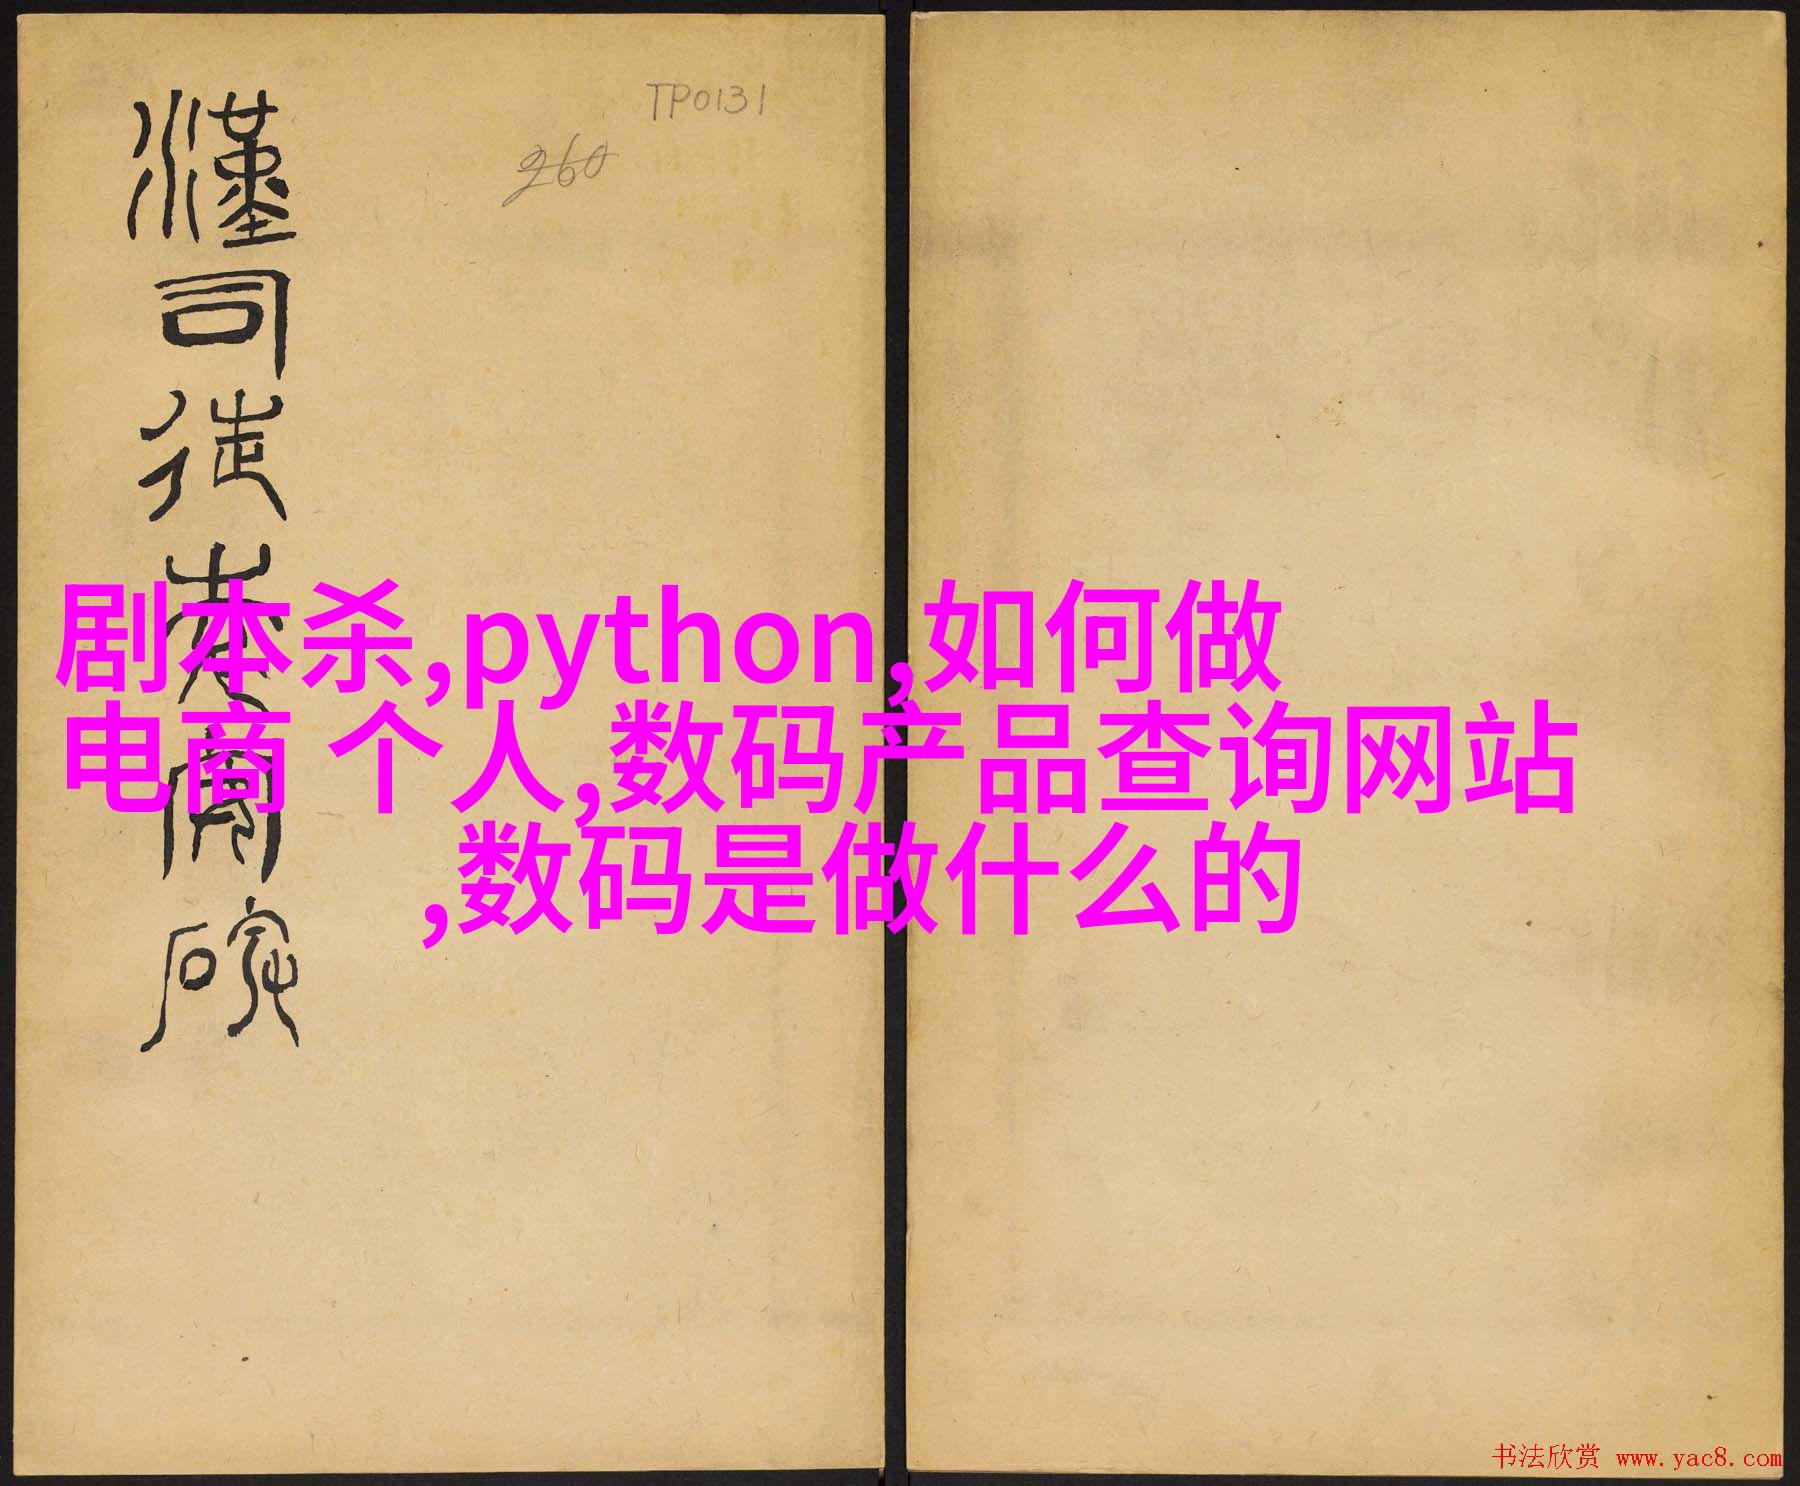 TP0131
260
漢司徒袁安碑
剧本杀,python,如何做
电商 个人,数码产品查询网站
,数码是做什么的
书法欣赏 www.yac8.com